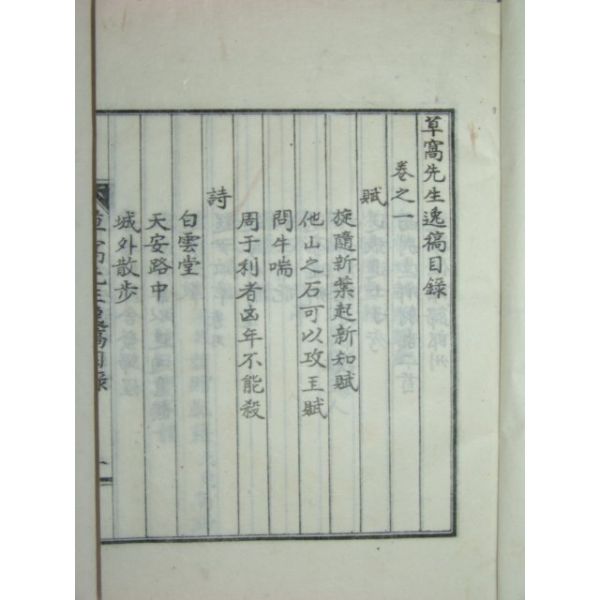 草窩先生逸稿目錄
卷之一
賦
旋隨新葉起新知賦
他山之石可以攻玉賦
問牛喘
周于利者凶年不能殺
詩
白雲堂
天安路中
城外散步
草窩先生逸稿目錄